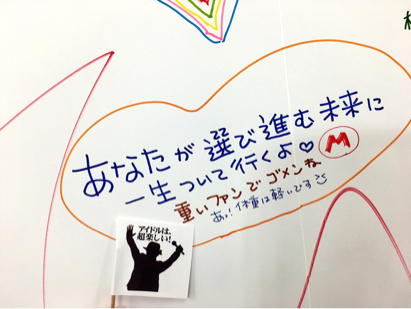 あなたが選び進む未来に
一生ついて行くよ♡
M
重いファンでゴメンね
あっ!体重は軽いです
アイドルは、
超楽しい!